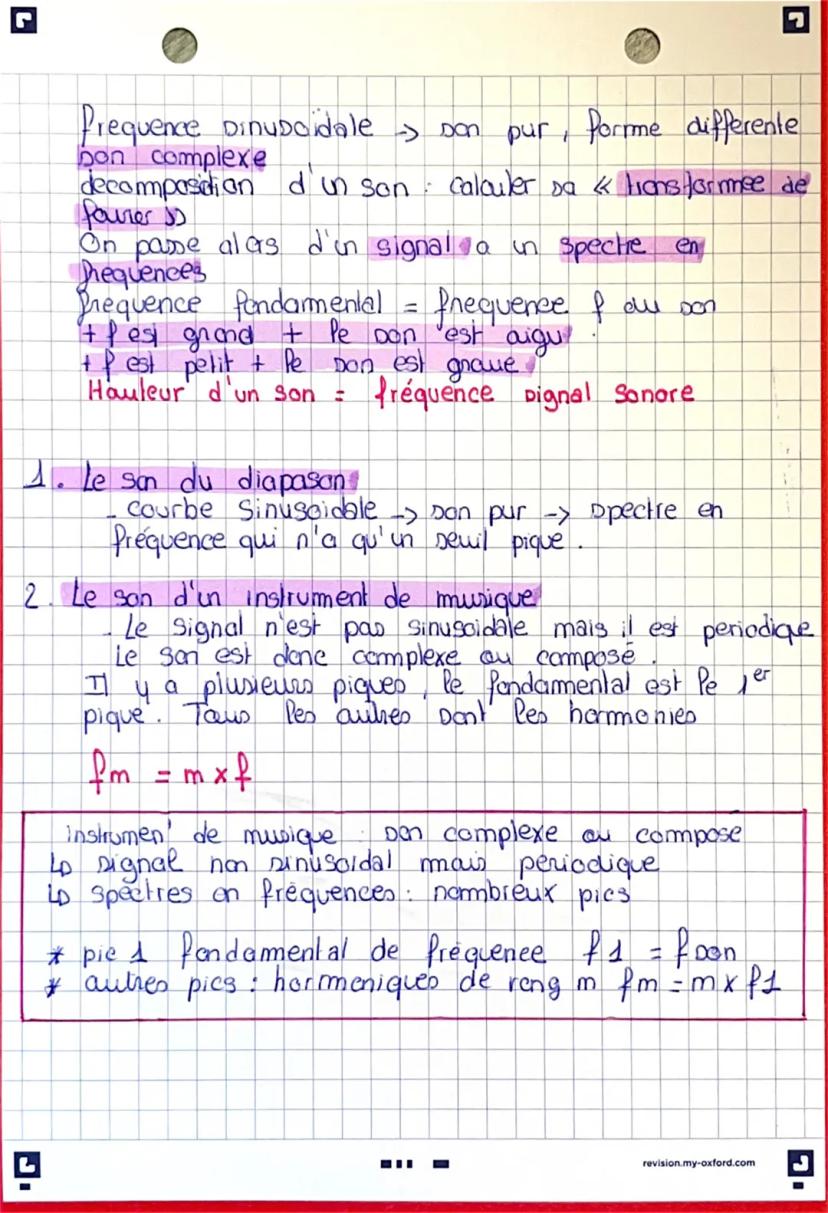 frequence sinusoïdale -> son pur, forme differente
son complexe
decomposition d'un son : calculer sa « transformee de
fourier »
On passe alors d'un signal a un spectre en
frequences
frequence fondamental = frequence f du son
+ f est grand + le son est aigu
+ f est petit + le son est grave
Hauteur d'un son = fréquence signal sonore
1. Le son du diapason
- courbe sinusoidale -> son pur -> spectre en
fréquence qui n'a qu'un seuil pique.
2. Le son d'un instrument de musique
- Le signal n'est pas sinusoidale mais il est periodique
Le son est donc complexe ou composé.
Il y a plusieurs piques, le fondamental est le 1er
pique. Tous les autres sont les harmonies
fm = m x f
instrument de musique : son complexe ou compose
↳ signal non sinusoidal mais periodique
↳ spectres en fréquences : nombreux pics
* pic 1 fondamental de fréquence f1 = f son
* autres pics : harmoniques de rang m fm = m x f1
revision.my-oxford.com